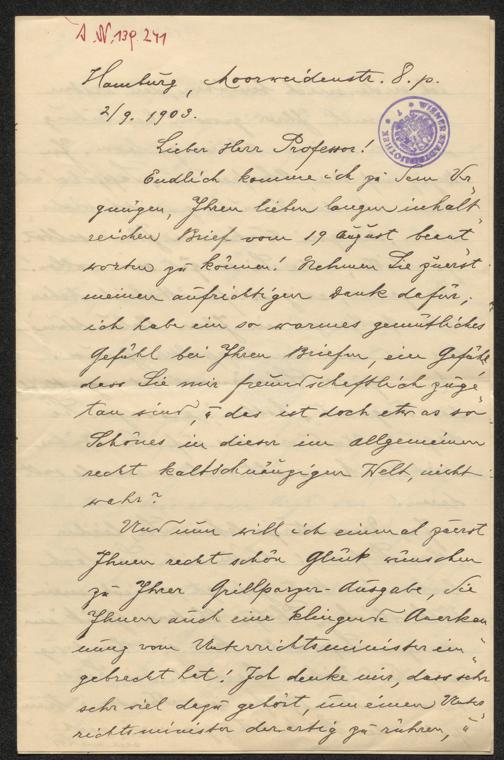 J. N. 139.241
Hamburg, Moorweidenstr. 8. p.
2/9. 1903.
WIENER STADTBIBLIOTHEK
Lieber Herr Professor!
Endlich komme ich zu dem Ver-
gnügen, Ihren lieben langen inhalt-
reichen Brief vom 19 August beant-
worten zu können! Nehmen Sie zuerst
meinen aufrichtigen Dank dafür;
ich habe ein so warmes gemütliches
Gefühl bei Ihren Briefen, ein Gefühl,
dass Sie mir freundschaftlich zuge-
tan sind, u das ist doch etwas so
Schönes in dieser im allgemeinen
recht kaltschnäuzigen Welt, nicht
wahr?
Und nun will ich einmal zuerst
Ihnen recht schön Glück wünschen
zu Ihrer Grillparzer-Ausgabe, die
Ihnen auch eine klingende Anerken-
nung vom Unterrichtsminister ein-
gebracht hat! Ich denke mir, dass sehr
sehr viel dazu gehört, um einen Unter-
richtsminister derartig zu rühren, u